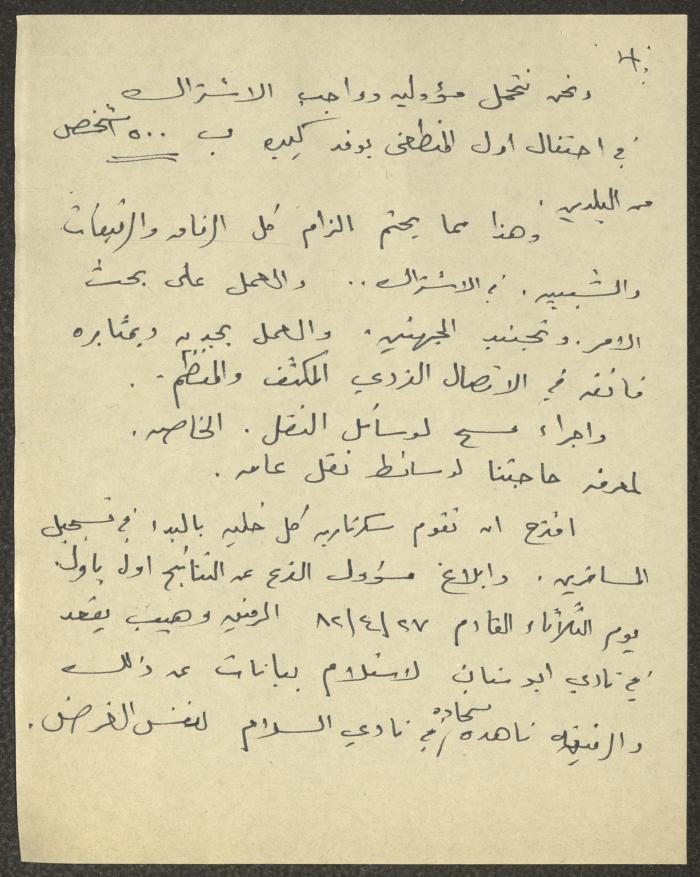 ونحن نتحمل مسؤوليه وواجب الاشتراك
في احتفال اول المنطقي بوفد كبير ب ٥٠٠ شخص
من البلدين.
وهذا مما يحتم الزام كل الرفاق والرفيقات
والشبيبه. في الاشتراك .. والعمل على بحث
الامر. وتجنيد المجهتين. والعمل بجديه وبمثابره
فائقه في الاتصال الفردي المكثف والمنظم.
واجراء مسح لوسائل النقل. الخاصه.
لمعرفه حاجتنا لوسائط نقل عامه.
اقترح ان تقوم سكرتاريه كل خليه بالبدا في تسجيل
المسافرين. وابلاغ مسؤول الفرع عن النتائج اول باول.
يوم الثلاثاء القادم ٨٢/٤/٢٧ الرفيق وهيب يقعد
في نادي ابو سنان لاستلام بيانات عن ذلك
والرفيقه ناهده شحاده في نادي السلام لنفس الغرض.